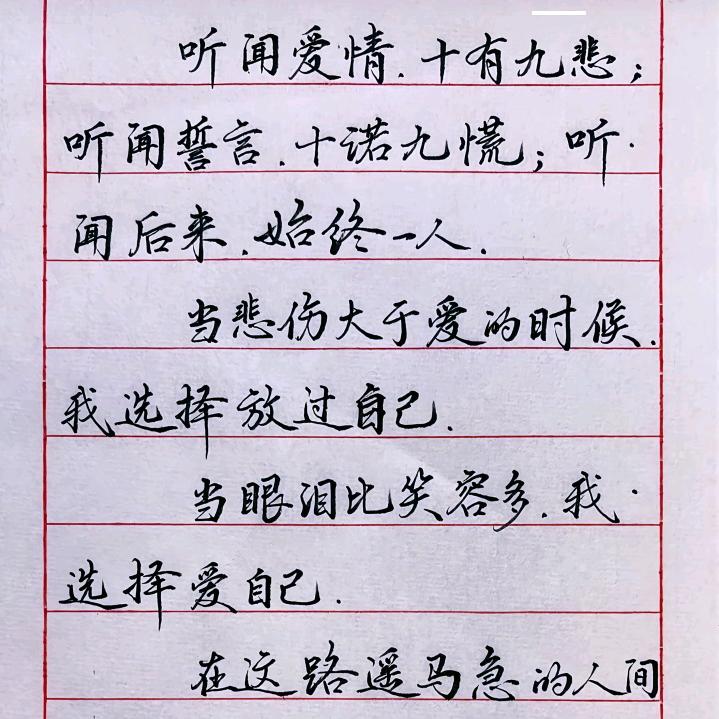 听闻爱情.十有九悲;
听闻誓言.十诺九慌;听
闻后来.始终一人.
当悲伤大于爱的时候.
我选择放过自己.
当眼泪比笑容多.我
选择爱自己.
在这路遥马急的人间